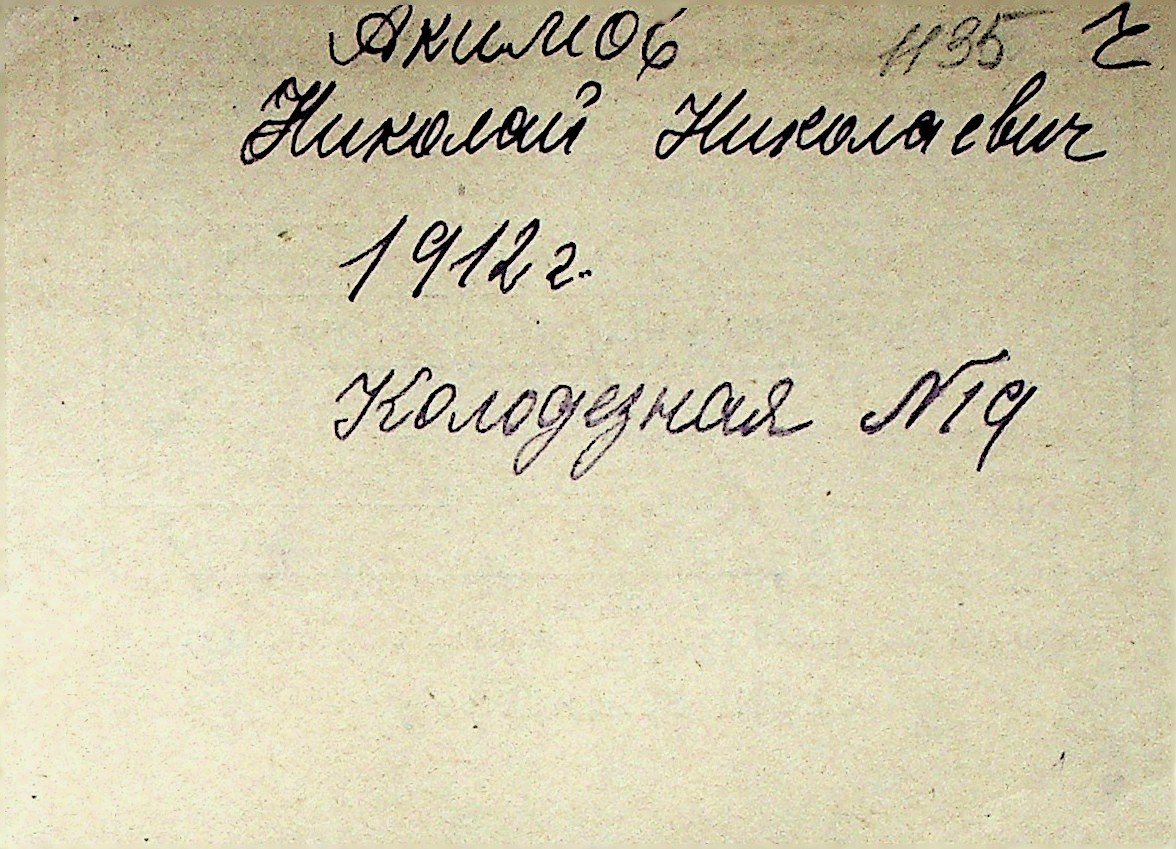 Акимов 1195 Ч
Николай Николаевич
1912 г.
Колодезная №19